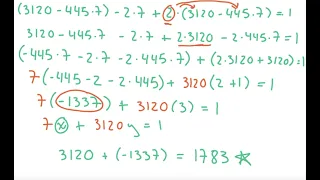 (3120-445·7)-2·7+2·(3120-445·7)=1
3120-445·7 -2·7+2·3120-2·445·7=1
(-445·7-2·7-2·445·7)+(2·3120+3120)=1
7(-445-2-2·445)+3120(2+1)=1
7(-1337)+3120(3)=1
7x+3120y=1
3120+(-1337)=1783 ★